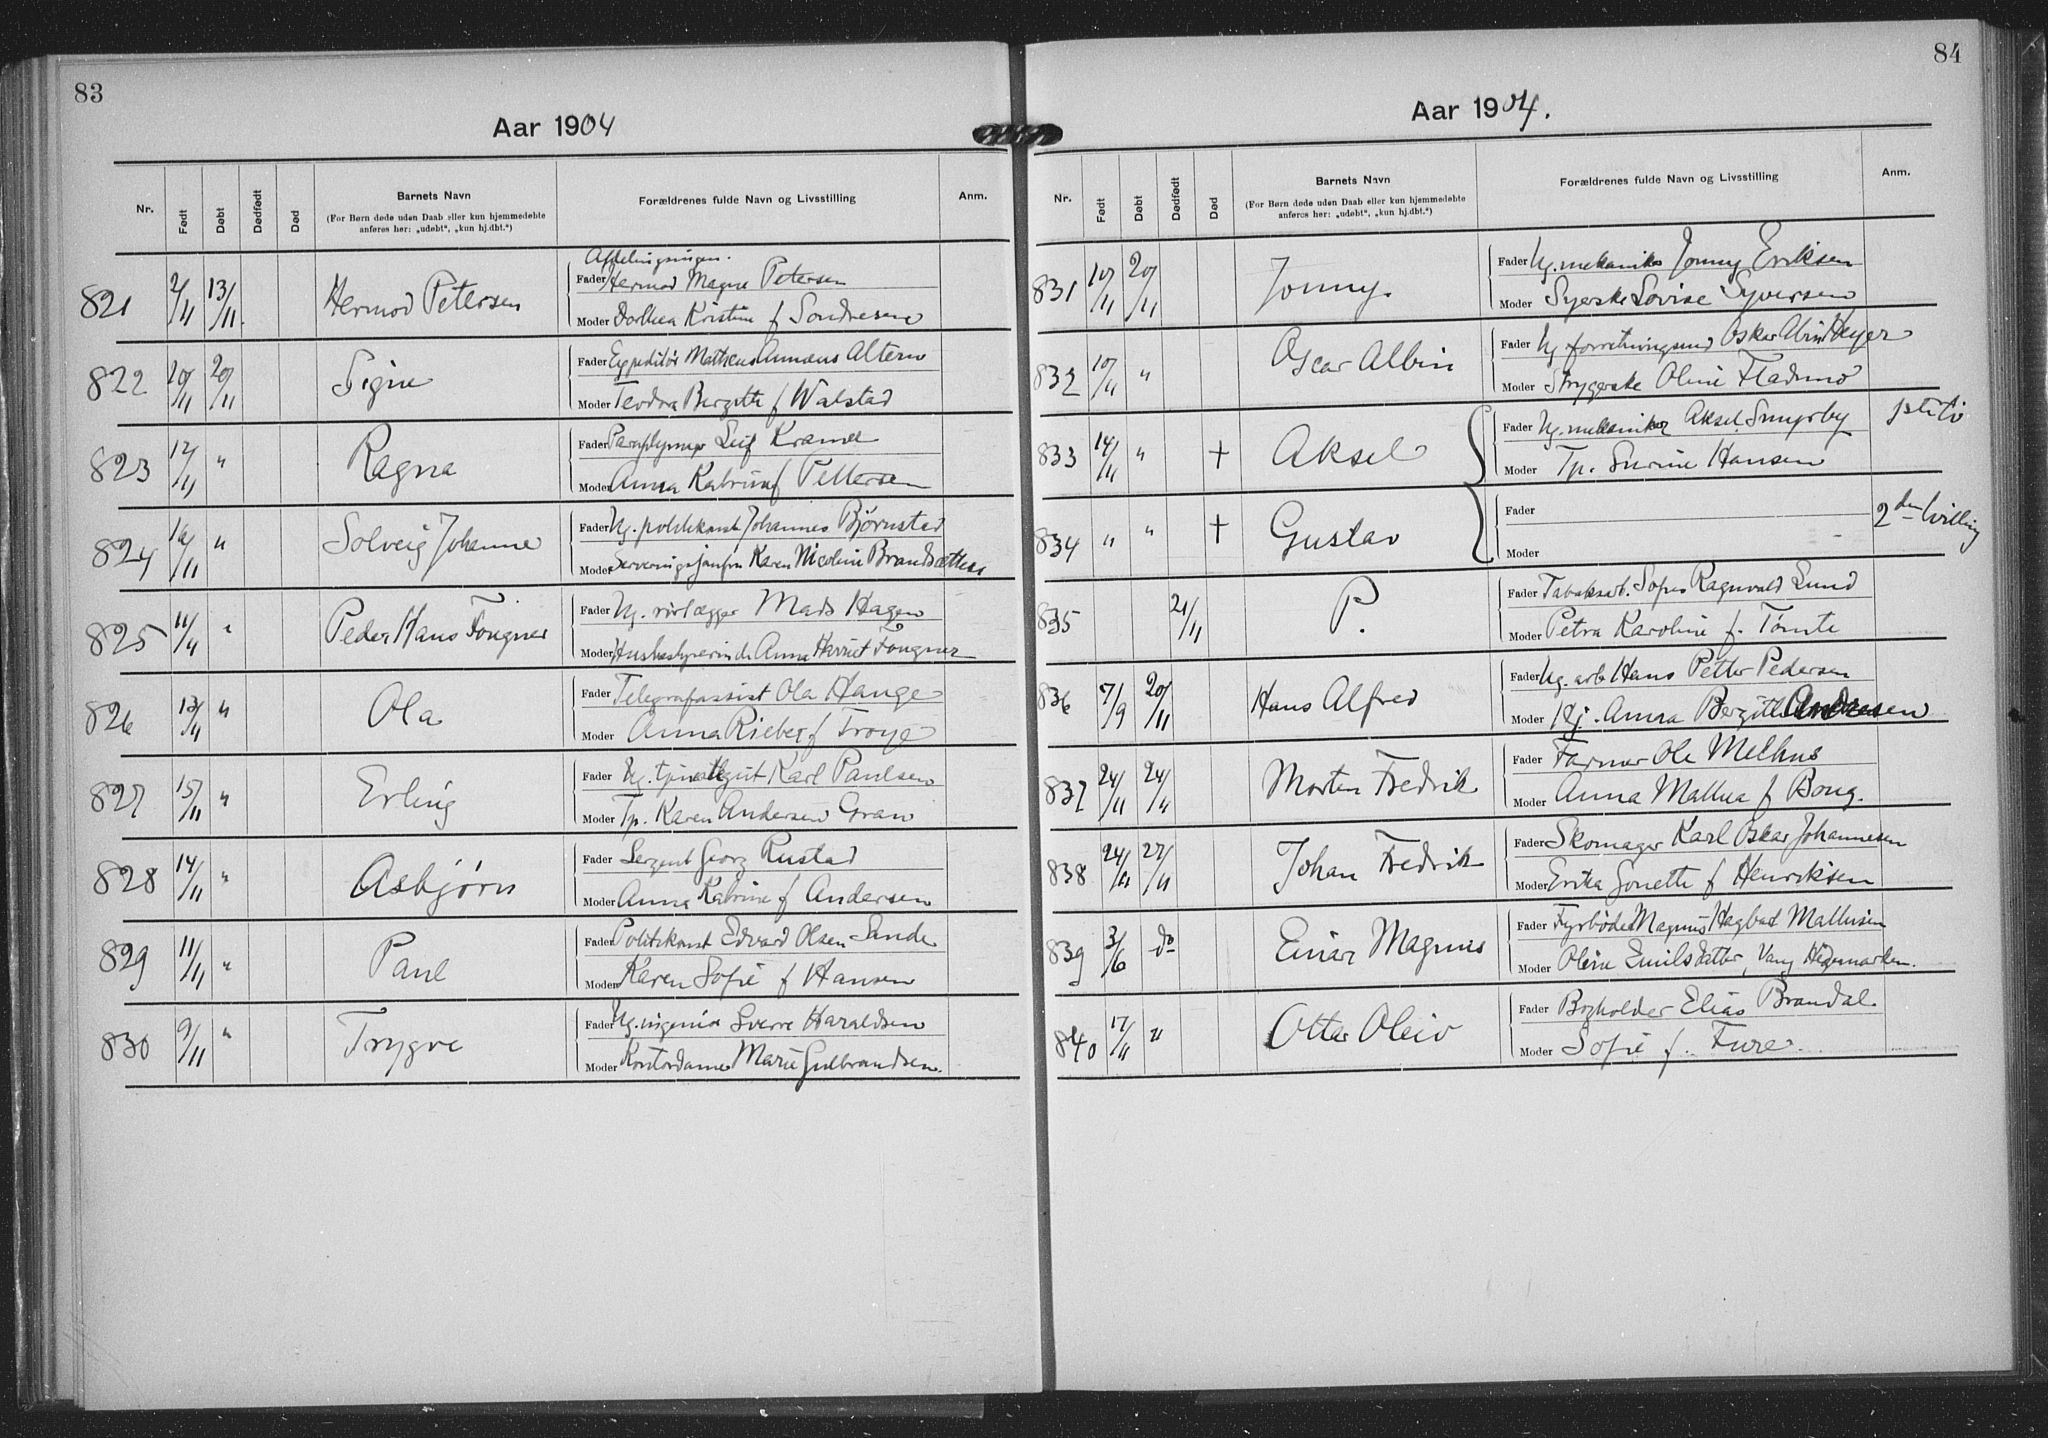 83
Aar 1904
Nr.
Født
Døbt
Dødfødt
Død
Barnets Navn
(For Børn døde uden Daab eller kun hjemmedøbte
anføres her: „udøbt“, „kun hj.dbt.“)
Forældrenes fulde Navn og Livsstilling
Anm.
821 2/11 13/11. Hermod Petersen
Fader Hermod Magne Petersen
Moder Dorthea Kristine f Sondresen
822 20/11 Signe
Fader Expeditør Matheus Altern
Moder Teodora Bergitte f Walstad
823 12/11 " Ragna
Fader Leif Kramer
Moder Anna Katrine f Pettersen
824 " Solveig Johanne
Fader Ug. politikonst Johannes Bjørnstad
Moder Serveringsjomfru Karen Nicoline Brandsætter
825 11/11 " Peder Hans Fougner
Fader Ug. rørlægger Mads Hagen
Moder Husbestyrerinde Anna Harriet Fougner
826 13/11 " Ola
Fader Telegrafassist Ola Hauge
Moder Anna Rieber f Troye
827 15/11 " Erling
Fader Ug. Karl Paulsen
Moder Tp. Karen Andersen Gran
828 14/11 " Asbjørn
Fader Sergent Georg Rustad
Moder Anna Katrine f Andersen
829 11/11 " Paul
Fader Politikonst Edvard Olsen Sande
Moder Karen Sofie f Hansen
830 9/11 " Trygve
Fader Ug. ingeniør Sverre Haraldsen
Moder Kontordame Marie Gulbrandsen.
84
Aar 1904.
Nr.
Født
Døbt
Dødfødt
Død
Barnets Navn
(For Børn døde uden Daab eller kun hjemmedøbte
anføres her: „udøbt“, „kun hj.dbt.“)
Forældrenes fulde Navn og Livsstilling
Anm.
831 10/11 20/11 Jonny.
Fader Ug. mekaniker Jonny Eriksen
Moder Syerske Lovise Syversen
832 10/11 " Oscar Albin
Fader Ug forretningsmd Oskar Heyer
Moder Strygerske Oline Fladmo
833 14/11 " + Aksel
Fader Ug. mekaniker Aksel Smugsby
Moder Tp. Hansen
834 " " + Gustav
Fader
Moder
2den tvilling
835 21/11 P.
Fader Tabaksarb. Ragnvald Lund
Moder Petra Karoline f. Tømte
836 7/9 20/11 Hans Alfred
Fader Ug. arb Hans Petter Pedersen
Moder Pj. Anna Bergitte Andresen
837 24/11 24/11 Morten Fredrik
Fader Farmer Ole Melhus
Moder Anna Mathea f Bong.
838 24/11 27/11 Johan Fredrik
Fader Skomager Karl Oskar Johannesen
Moder Erika Jonette f Henriksen
839 3/6 do Einar Magnus
Fader Fyrbøder Magnus Hagbart Mathisen
Moder Oline Emilsdatter, Vang Hedemarken.
840 17/11 " Otter Oleiv
Fader Bogholder Elias Brandal.
Moder Sofie f. Fure.